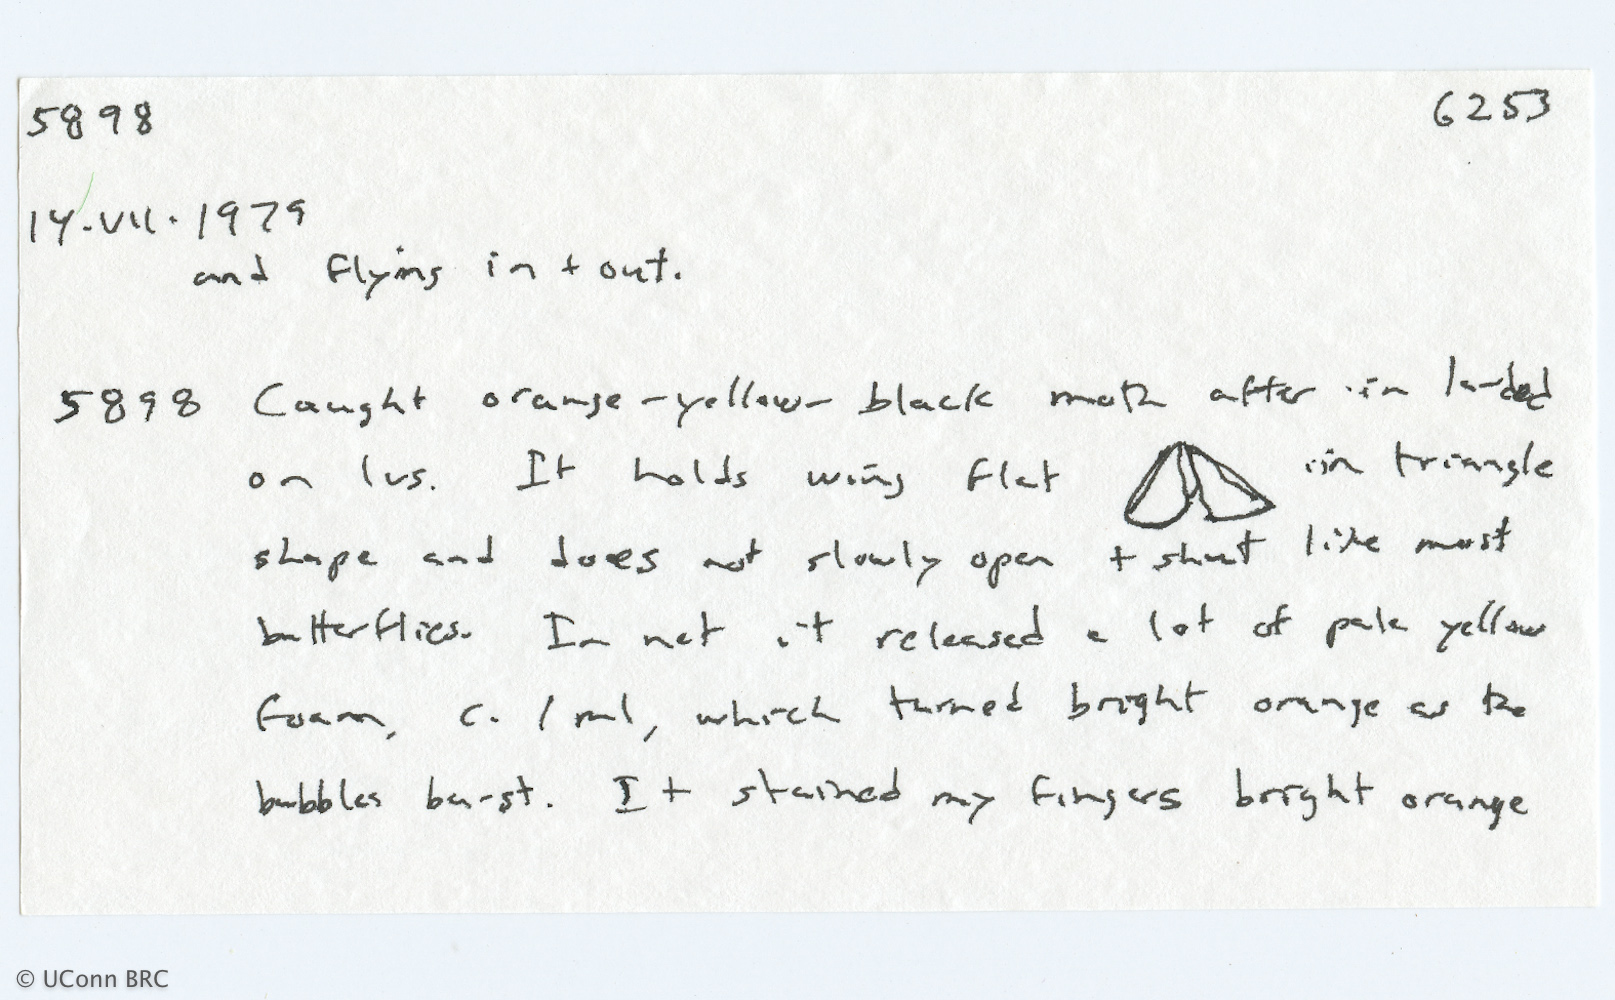 5898 6253
14.VII.1979
and flying in + out.
5898 Caught orange-yellow-black moth after in landed
on lvs. It holds wing flat in triangle
shape and does not slowly open + shut like most
butterflies. In net it released a lot of pale yellow
foam, c. 1 ml, which turned bright orange as the
bubbles burst. It stained my fingers bright orange
© UConn BRC